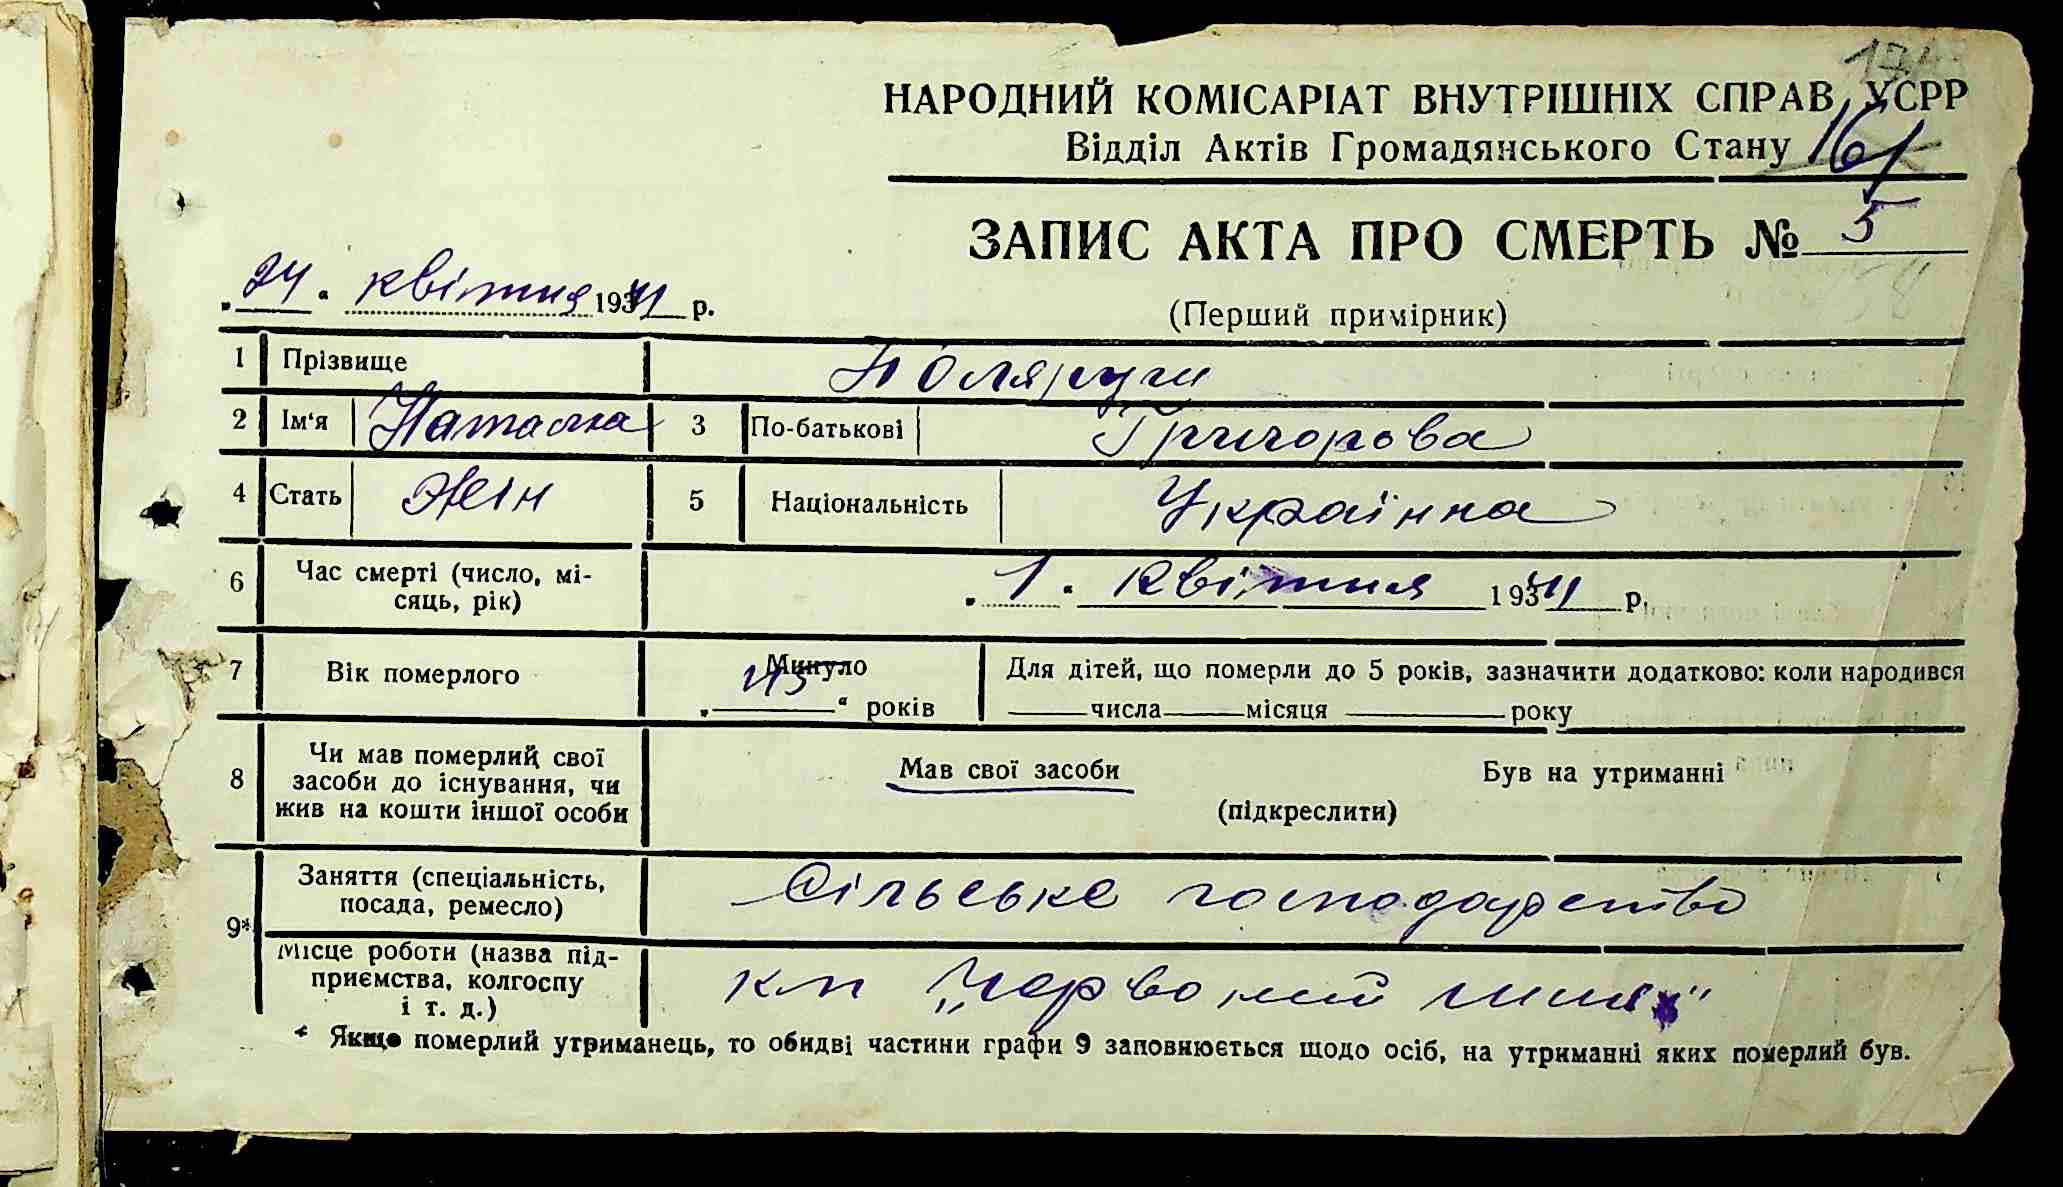 НАРОДНИЙ КОМІСАРІАТ ВНУТРІШНІХ СПРАВ УСРР
Відділ Актів Громадянського Стану 161
ЗАПИС АКТА ПРО СМЕРТЬ № 5
„24“ квітня 1941 р.
(Перший примірник)
1 Прізвище Поляруш
2 Ім'я Наталка 3 По-батькові Григорова
4 Стать Жін 5 Національність Українка
6 Час смерті (число, мі-
сяць, рік) „1“ Квітня 1941 р.
7 Вік померлого Минуло Для дітей, що померли до 5 років, зазначити додатково: коли народився
„43“ років числа місяця року
8 Чи мав померлий свої
засоби до існування, чи
жив на кошти іншої особи Мав свої засоби Був на утриманні
(підкреслити)
9* Заняття (спеціальність,
посада, ремесло) Сільське господарство
Місце роботи (назва під-
приємства, колгоспу
і т. д.) кп „Червоний шлях“
* Якщо померлий утриманець, то обидві частини графи 9 заповнюється щодо осіб, на утриманні яких померлий був.